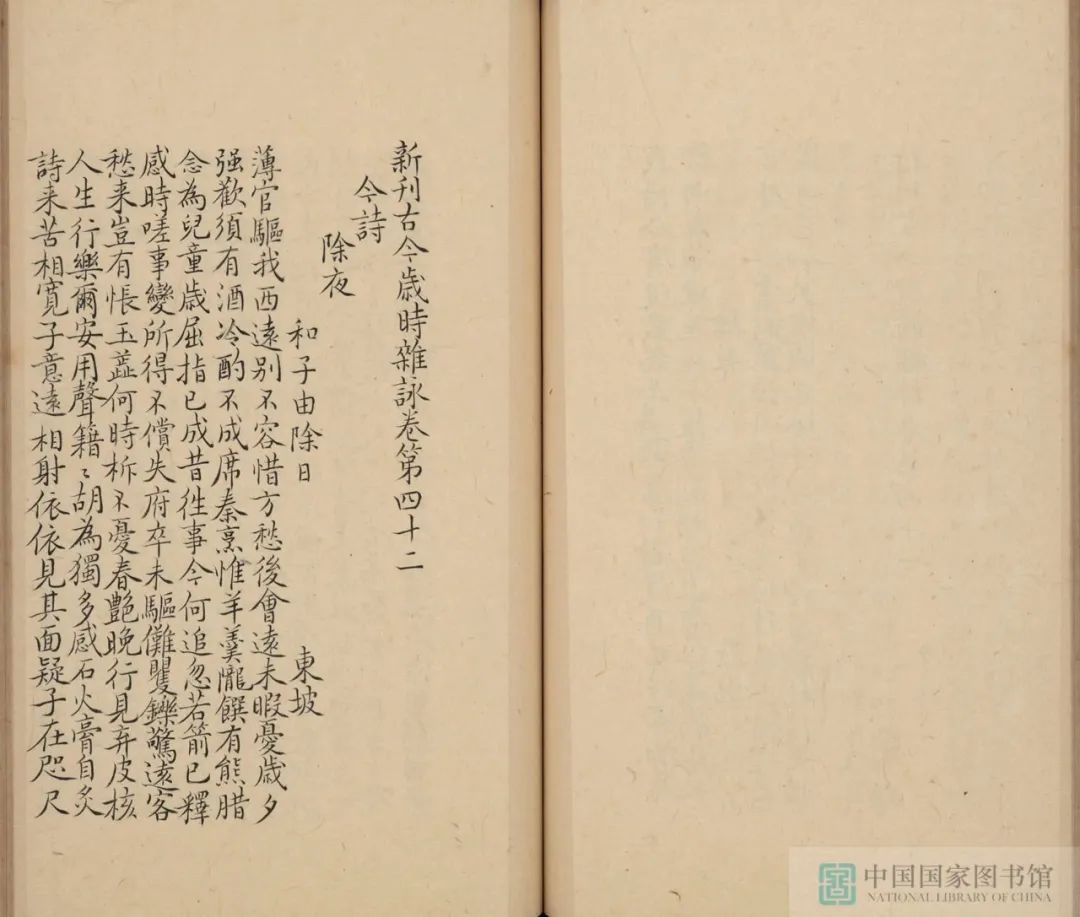 新刊古今歲時雜詠卷第四十二
今詩
除夜
和子由除日 東坡
薄官驅我西遠别不容惜方愁後會遠未暇憂歲夕
强歡須有酒冷酌不成席秦烹惟羊羹隴饌有熊腊
念為兒童歲屈指已成昔徃事今何追忽若箭已釋
感時嗟事變所得不償失府卒未驅儺矍鑠驚遠客
愁来豈有悵玉蘂何時柝不憂春艶晚行見弃皮核
人生行樂爾安用聲籍〻胡為獨多感石火膏自炙
詩来苦相寬子意遠相射依依見其面疑子在咫尺
中国国家图书馆
NATIONAL LIBRARY OF CHINA